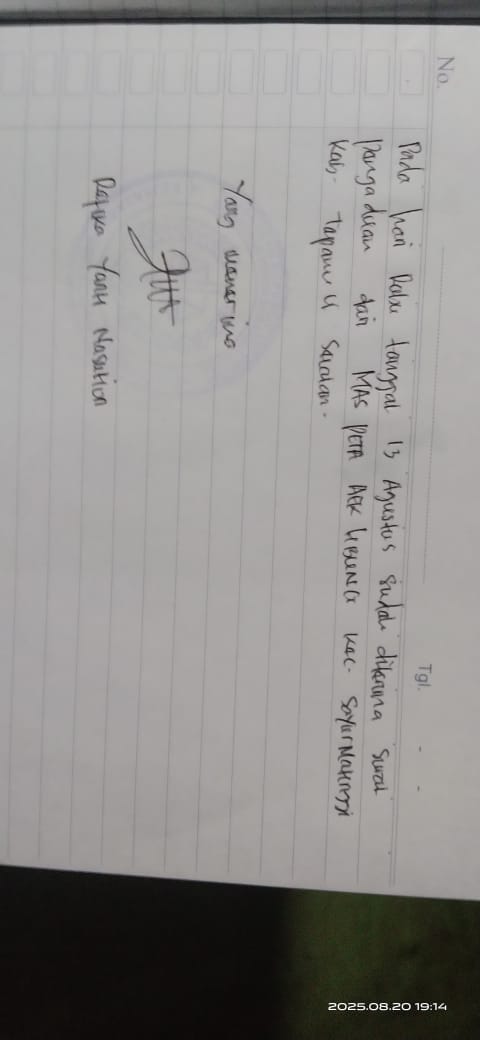 No.
Tgl. - -
Pada hari Rabu tanggal 13 Agustus sudah diterima surat
Pangaduan dari MAS PETA AEK LIBUNG Kec. Sayurmatinggi
Kab. Tapanuli Selatan.
Yang menerima
Yanti Nasution
2025.08.20 19:14